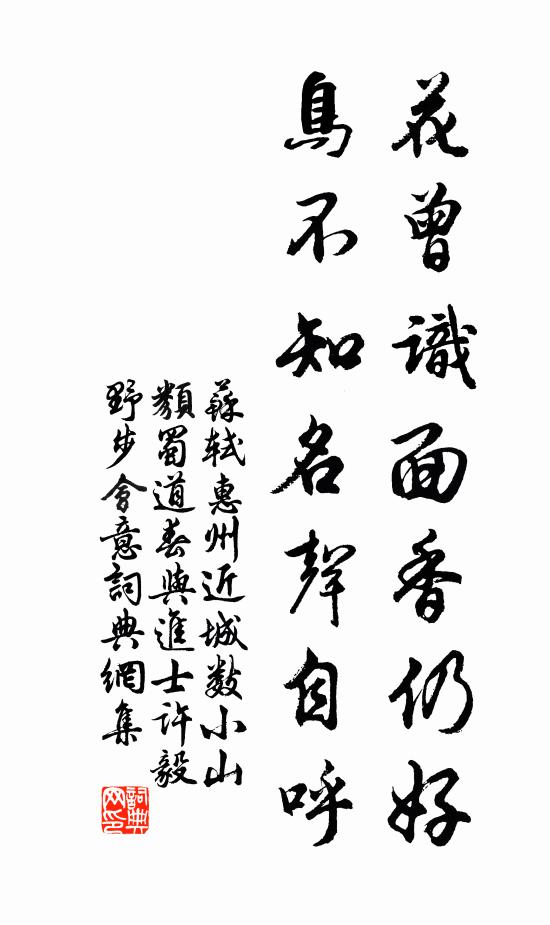 花曾識面香仍好
鳥不知名聲自呼
蘇軾惠州近城數小山
類蜀道春與進士許毅
野步會意詞典網集
詞典網印